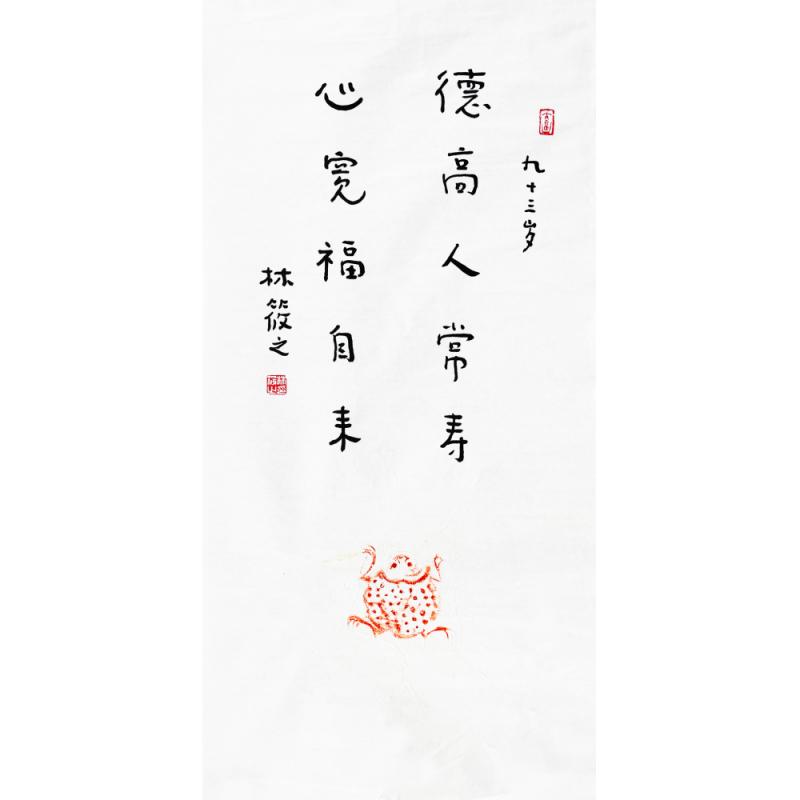 九十三岁
德高人常寿
心宽福自来
林筱之